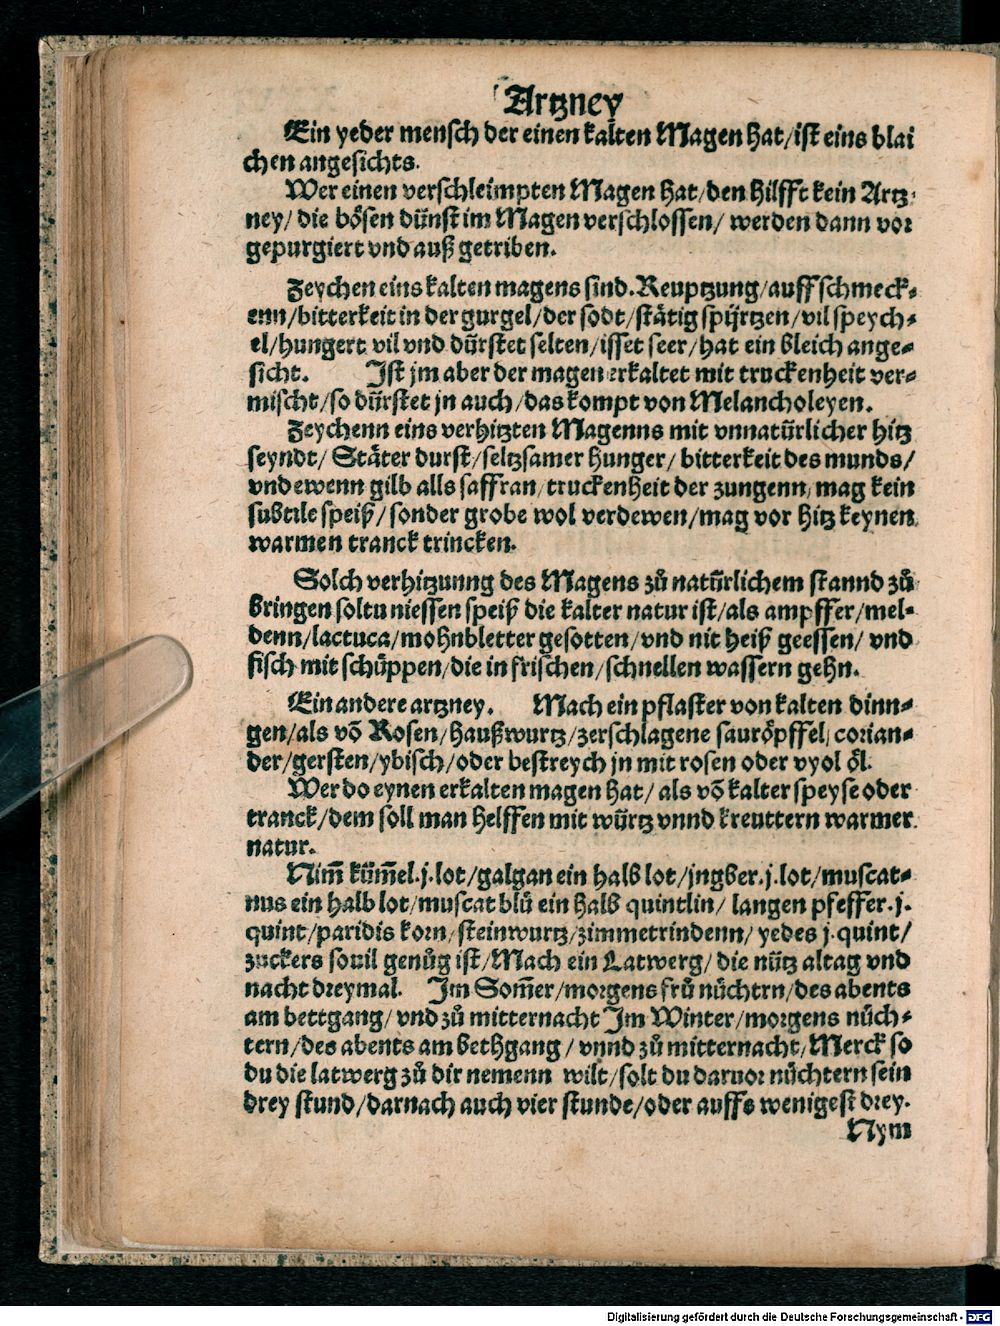 Artzney
Ein yeder mensch der einen kalten Magen hat/ist eins blai
chen angesichts.
Wer einen verschleimpten Magen hat/den hilfft kein Artz⸗
ney/ die bösen dünst im Magen verschlossen/ werden dann vor
gepurgiert vnd auß getriben.
Zeychen eins kalten magens sind. Reuptzung/auff schmeck⸗
enn/bitterkeit in der gurgel/der sodt/stätig spürtzen/vil speych⸗
el/hungert vil vnd dürstet selten/isset seer/hat ein bleich ange⸗
sicht. Ist jm aber der magen erkaltet mit truckenheit ver⸗
mischt/so dürstet jn auch/das kompt von Melancholeyen.
Zeychenn eins verhitzten Magenns mit vnnatürlicher hitz
seyndt/ Stäter durst/seltzsamer hunger/ bitterkeit des munds/
vnd ewenn gilb alls saffran/truckenheit der zungenn/mag kein
subtile speiß/sonder grobe wol verdewen/mag vor hitz keynen
warmen tranck trincken.
Solch verhitzunng des Magens zů natürlichem stannd zů
bringen soltu niessen speiß die kalter natur ist/als ampffer/mel⸗
denn/lactuca/mohnbletter gesotten/vnd nit heiß geessen/ vnd
fisch mit schüppen/die in frischen/schnellen wassern gehn.
Ein andere artzney. Mach ein pflaster von kalten dinn⸗
gen/als võ Rosen/haußwurtz/zerschlagene sauröpffel/ corian⸗
der/gersten/ybisch/oder bestreych jn mit rosen oder vyol öl.
Wer do eynen erkalten magen hat/ als võ kalter speyse oder
tranck/dem soll man helffen mit würtz vnnd kreuttern warmer
natur.
Nim̃ küm̃el.j.lot/galgan ein halb lot/jngber.j.lot/muscat⸗
nus ein halb lot/muscat blů ein halb quintlin/ langen pfeffer.j.
quint/paridis korn/steinwurtz/zimmetrindenn/ yedes j.quint/
zuckers souil genůg ist/Mach ein Latwerg/ die nütz altag vnd
nacht dreymal. Im Som̃er/morgens frů nüchtrn/des abents
am bettgang/ vnd zů mitternacht Im Winter/morgens nüch⸗
tern/des abents am bethgang/ vnnd zů mitternacht/Merck so
du die latwerg zů dir nemenn wilt/solt du daruor nüchtern sein
drey stund/darnach auch vier stunde/oder auffs wenigest drey.
Nym
Digitalisierung gefördert durch die Deutsche Forschungsgemeinschaft - DFG